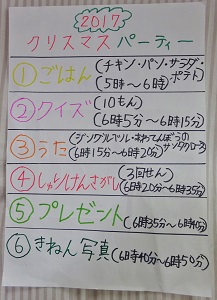 2017
クリスマスパーティー
①ごはん(チキン・パン・サラダ・ポテト)
(5時〜6時)
②クイズ(10もん)
(6時5分〜6時15分)
③うた(ジングルベル・あわてんぼうのサンタクロース)
(6時15分〜6時20分)
④しゅりけんさがし(3回せん)
(6時20分〜6時35分)
⑤プレゼント(6時35分〜6時40分)
⑥きねん写真(6時40分〜6時50分)